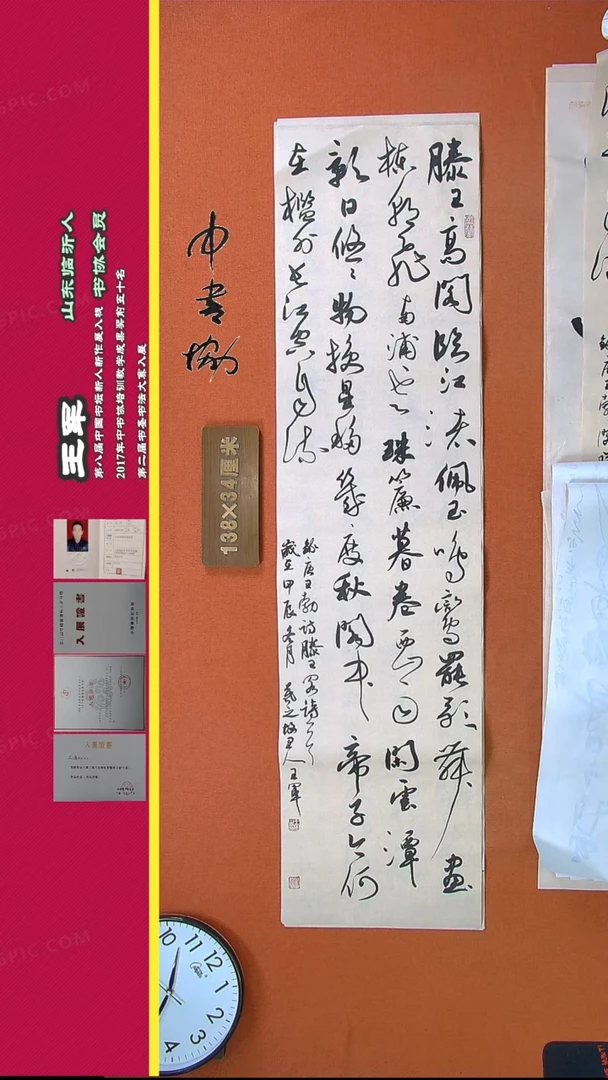 山东临沂人
王军
书协会员
第八届中国书坛新人新作展入展
2017年中书协培训教学成果奖前五十名
第二届书圣书法大赛入展
入展证书
中书协
138×34厘米
滕王高阁临江渚佩玉鸣鸾罢歌舞画
栋朝飞南浦云珠帘暮卷西山雨闲云潭
影日悠悠物换星移几度秋阁中帝子今何
在槛外长江空自流
录唐王勃诗滕王阁诗一首
岁在甲辰冬月 羲之故里人王军
10 11 12 1 2 3 4